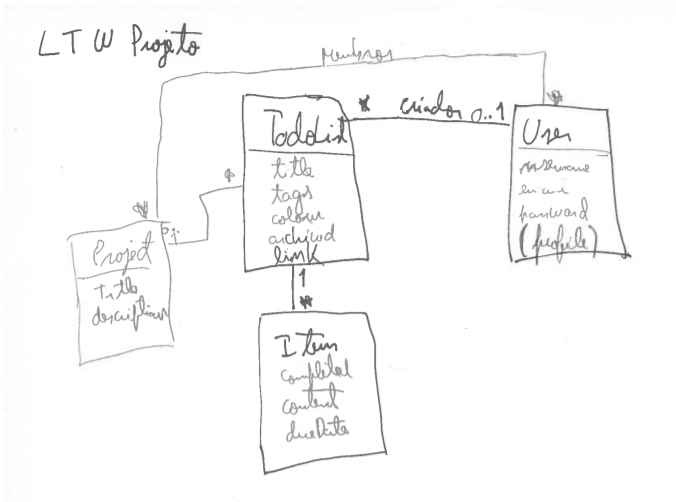 LTW Projeto
membros
*
* criador 0..1
TodoList
title
tags
colour
archived
link
User
username
email
password
(profile)
*
*
Project
Title
description
1
*
Item
completed
content
dueDate